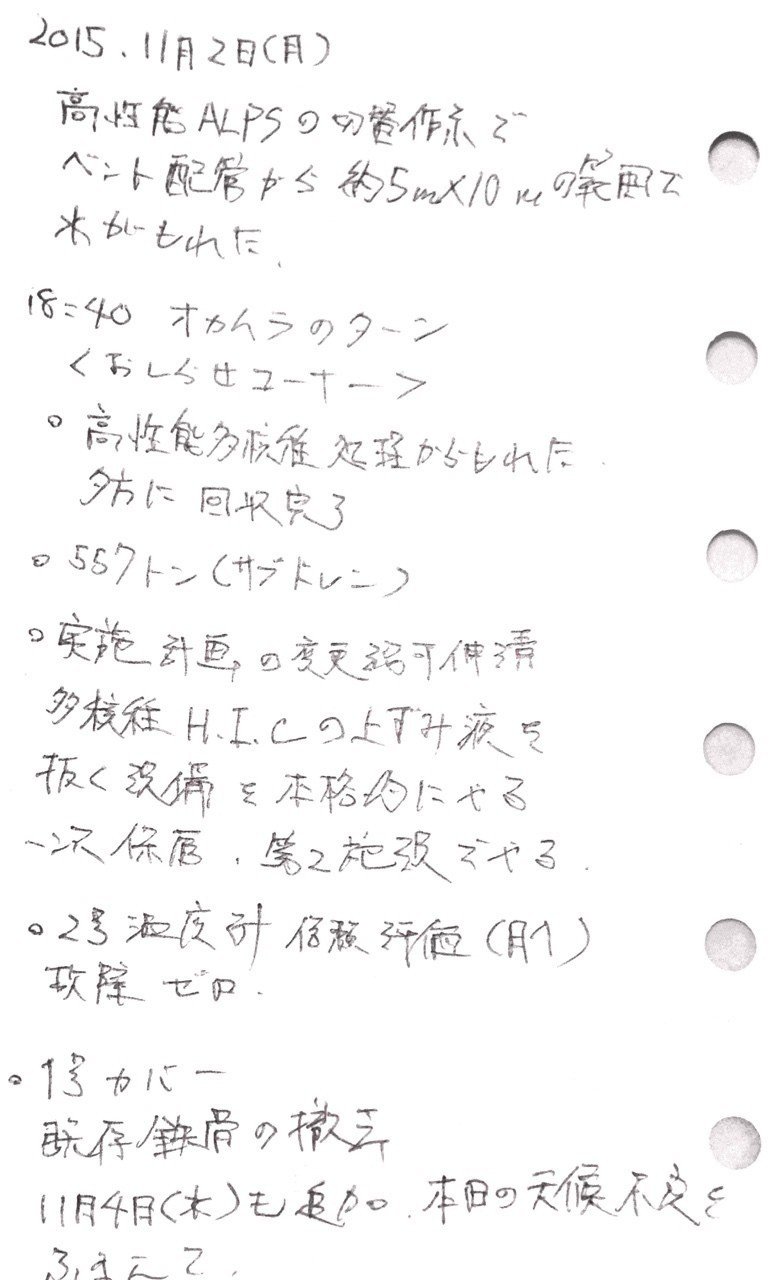 2015.11月2日(月)
高性能ALPSの切替作業で
ベント配管から約5m×10mの範囲で
水がもれた.
18:40 オカムラのターン
<おしらせコーナー>
○ 高性能多核種処理からもれた.
夕方に回収完了
○ 557トン(サブドレン)
○ 実施計画の変更認可申請
多核種H.I.Cの上ずみ液を
抜く設備を本格的にやる
一次保管、第2施設でやる.
○ 2号温度計信頼評価(月1)
故障ゼロ.
○ 1号カバー
既存鉄骨の撤去
11月4日(水)も追加.本日の天候不良を
ふまえて.